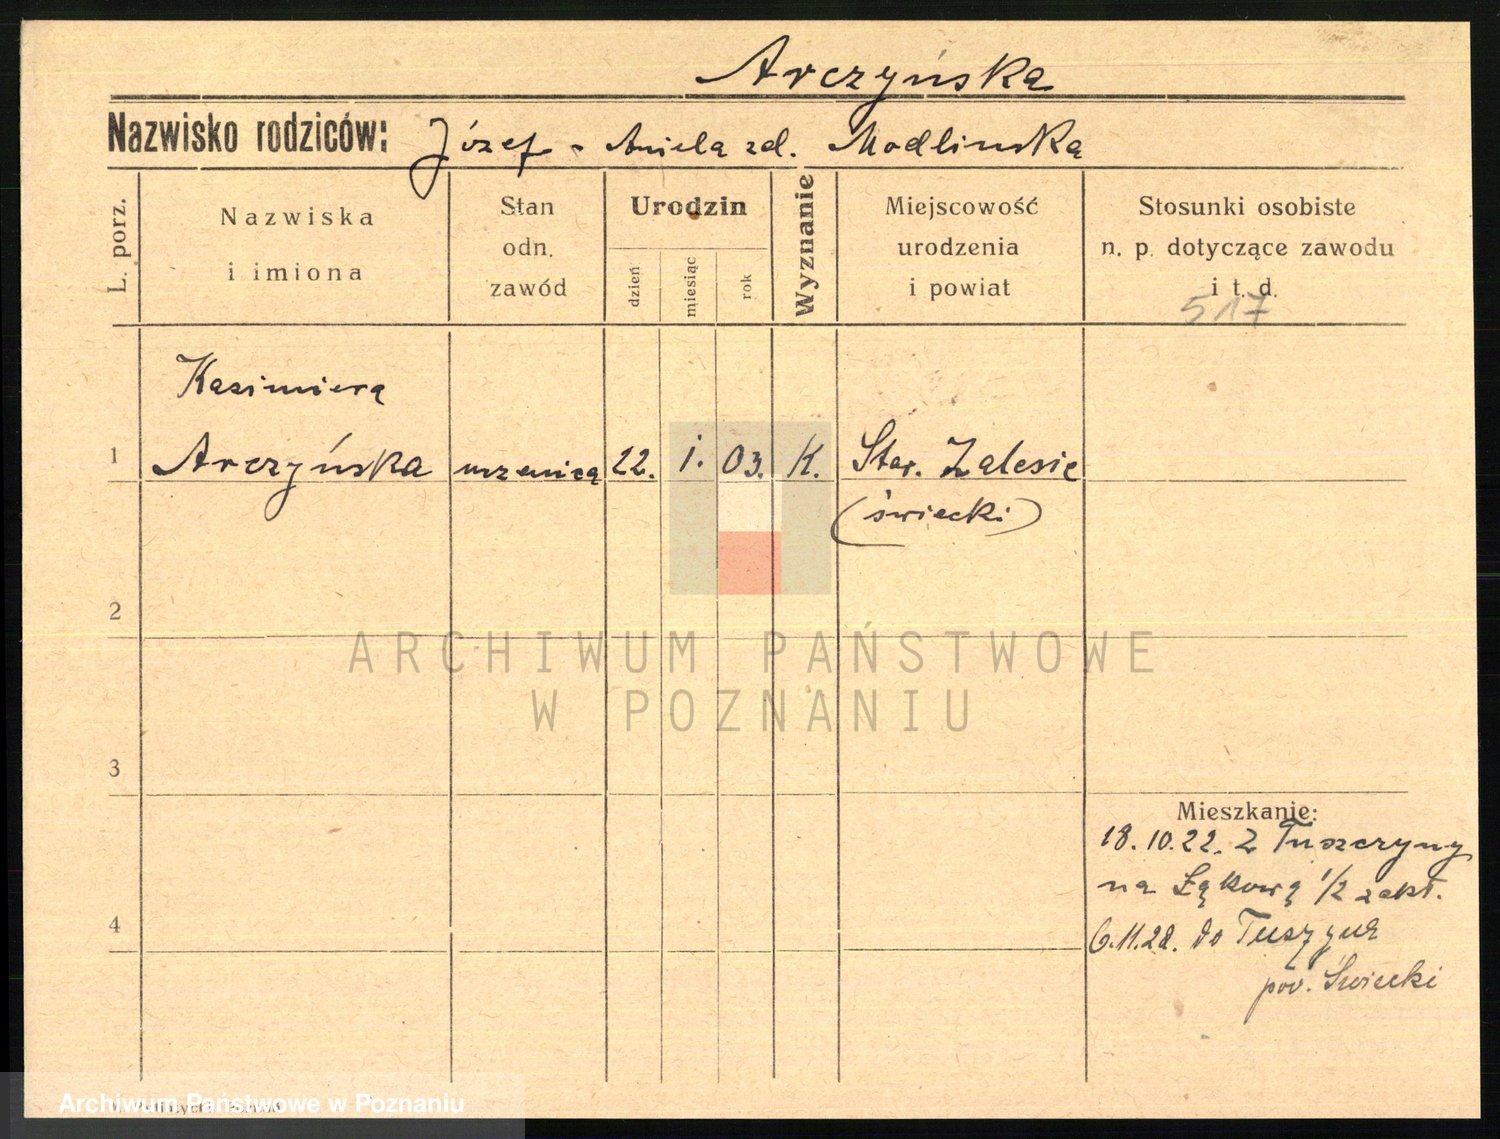 Arczyńska
Nazwisko rodziców: Józef - Aniela zd. Modlinska
L. porz.
Nazwiska
i imiona
Stan
odn.
zawód
Urodzin
dzień
miesiąc
rok
Wyznanie
Miejscowość
urodzenia
i powiat
Stosunki osobiste
n. p. dotyczące zawodu
i t. d.
517
Kazimiera
1 Arczyńska uczenica 22. I. 03. K. Star. Zalesie
(świecki)
2
ARCHIWUM PAŃSTWOWE
W POZNANIU
3
Mieszkanie:
18. 10. 22. Z Tuszczyny
na Łąkową 1/2 zakł.
4
6.11.22. do Tuszyna
pow. Świecki
Archiwum Państwowe w Poznaniu